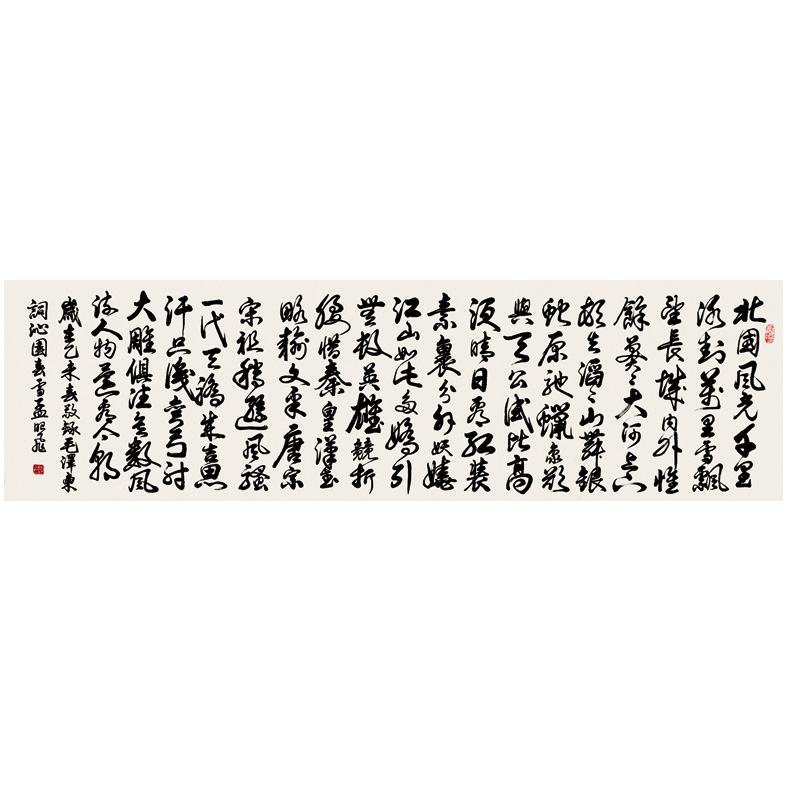 北國風光千里
冰封萬里雪飄
望長城內外惟
餘莽〻大河上下
頓失滔〻山舞銀
蛇原馳蠟象欲
與天公試比高
須晴日看紅裝
素裹分外妖嬈
江山如此多嬌引
無數英雄競折
腰惜秦皇漢武
略輸文采唐宗
宋祖稍遜風騷
一代天驕成吉思
汗只識彎弓射
大雕俱往矣數風
流人物還看今朝
歲在乙未春敬錄毛澤東
詞沁園春雪孟昭